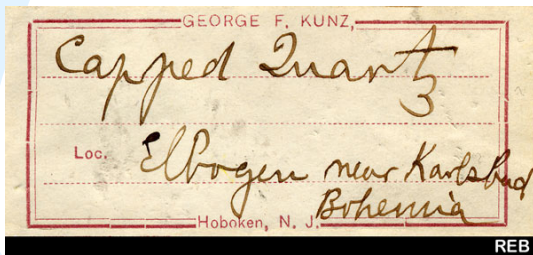 GEORGE F. KUNZ,
Capped Quartz
Loc. Elbogen near Karlsbad
Bohemia
Hoboken, N. J.
REB